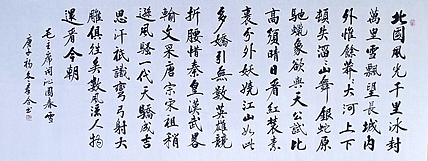 北國風光千里冰封
萬里雪飄望長城内
外惟餘莽々大河上下
頓失滔々山舞銀蛇原
馳蠟象欲與天公試比
高須晴日看紅裝素
裹分外妖嬈江山如此
多嬌引無數英雄競
折腰惜秦皇漢武略
輸文采唐宗宋祖稍
遜風騷一代天驕成吉
思汗祗識彎弓射大
雕俱往矣數風流人物
還看今朝
毛主席詞沁園春雪